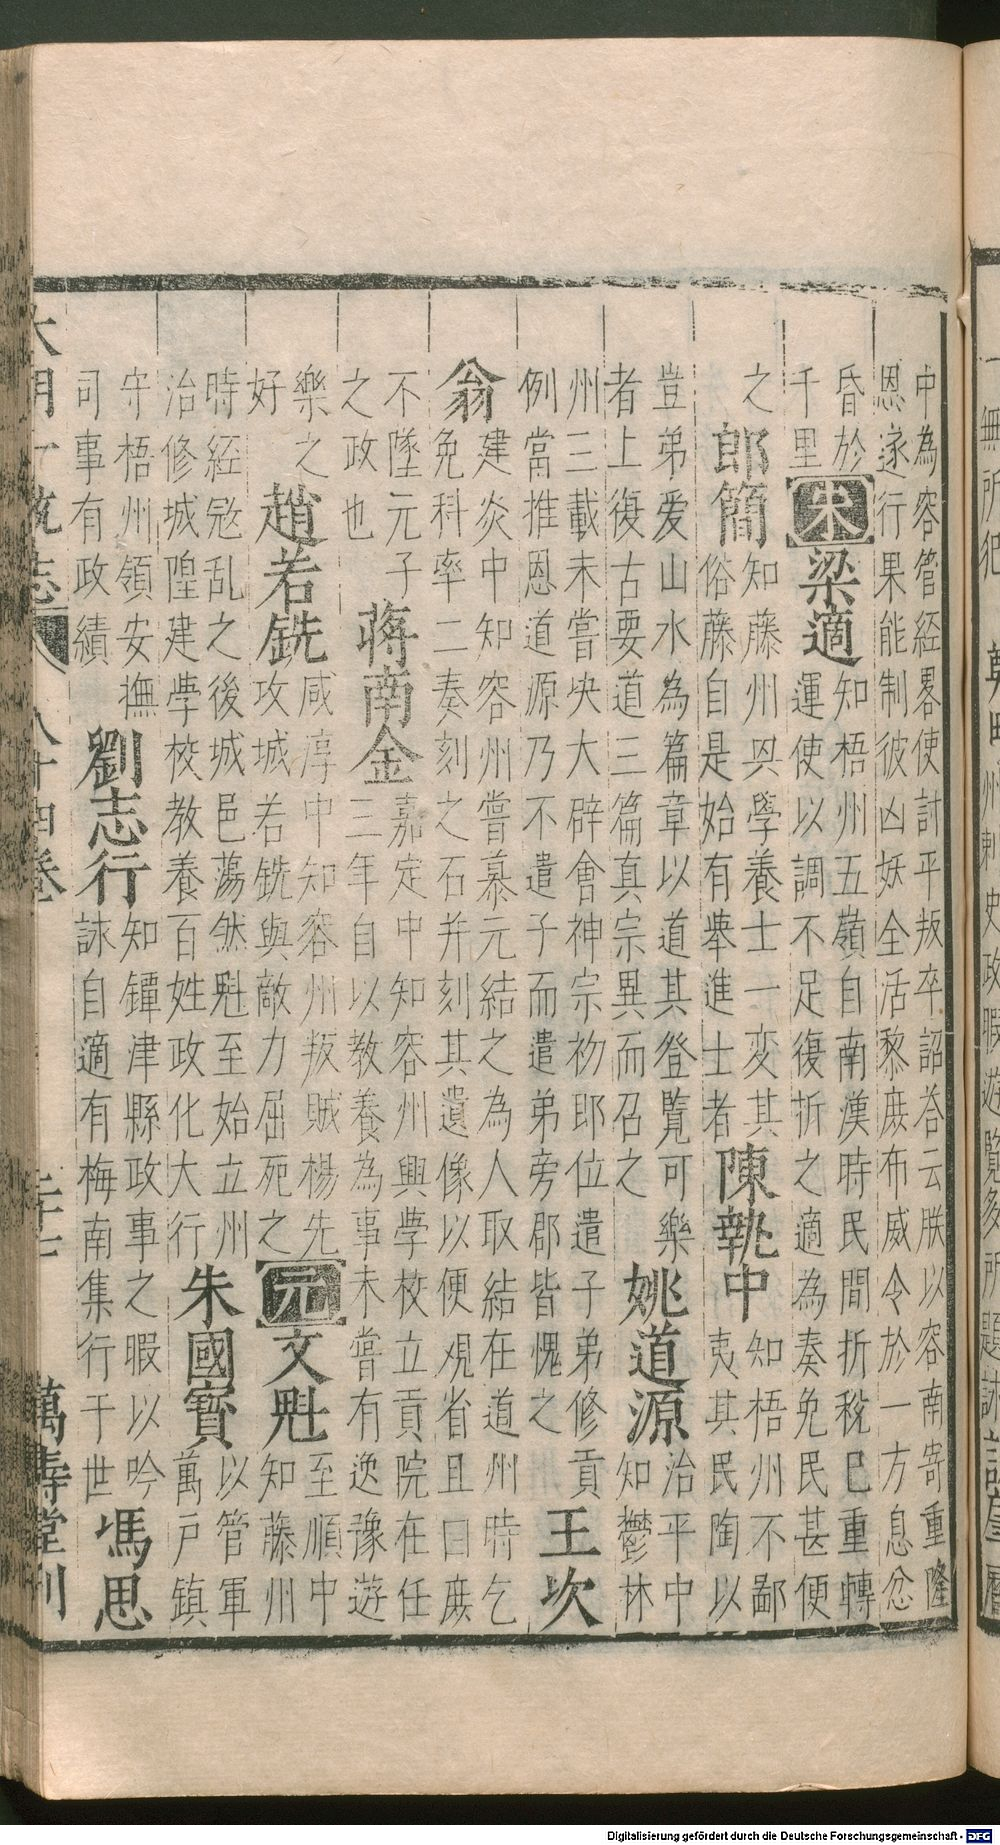 中為容管經畧使討平叛卒詔荅云朕以容南寄重隆
恩遂行果能制彼凶妖全活黎庶布威令於一方息忿
昏於
千里
宋
梁適
知梧州五嶺自南漢時民間折稅巳重轉
運使以調不足復折之適為奏免民甚便
之
郎簡
知藤州興學養士一變其
俗藤自是始有舉進士者
陳執中
知梧州不鄙
夷其民陶以
豈弟爱山水為篇章以道其登覽可樂
者上復古要道三篇真宗異而召之
姚道源
治平中
知鬱林
州三載未嘗坎大辟會神宗初即位遣子弟修貢
例當推恩道源乃不遣子而遣弟旁郡皆愧之
王次
翁
建炎中知容州嘗慕元結之為人取結在道州時乞
免科率二奏刻之石并刻其遺像以便覌省且曰庶
不墜元子
之政也
蔣南金
嘉定中知容州興學校立貢院在任
三年自以教養為事未嘗有逸豫遊
樂之
好
趙若銑
咸淳中知容州叛賊楊先
攻城若銑與敵力屈死之
元
文魁
至順中
知藤州
時經冦乱之後城邑蕩然魁至始立州
治修城隍建學校教養百姓政化大行
朱國寳
以管軍
萬户鎮
守梧州領安撫
司事有政績
劉志行
知鐔津縣政事之暇以吟
詠自適有梅南集行于世
馮思
大明一統志
八十四卷
萬壽堂刊
Digitalisierung gefördert durch die Deutsche Forschungsgemeinschaft - DFG